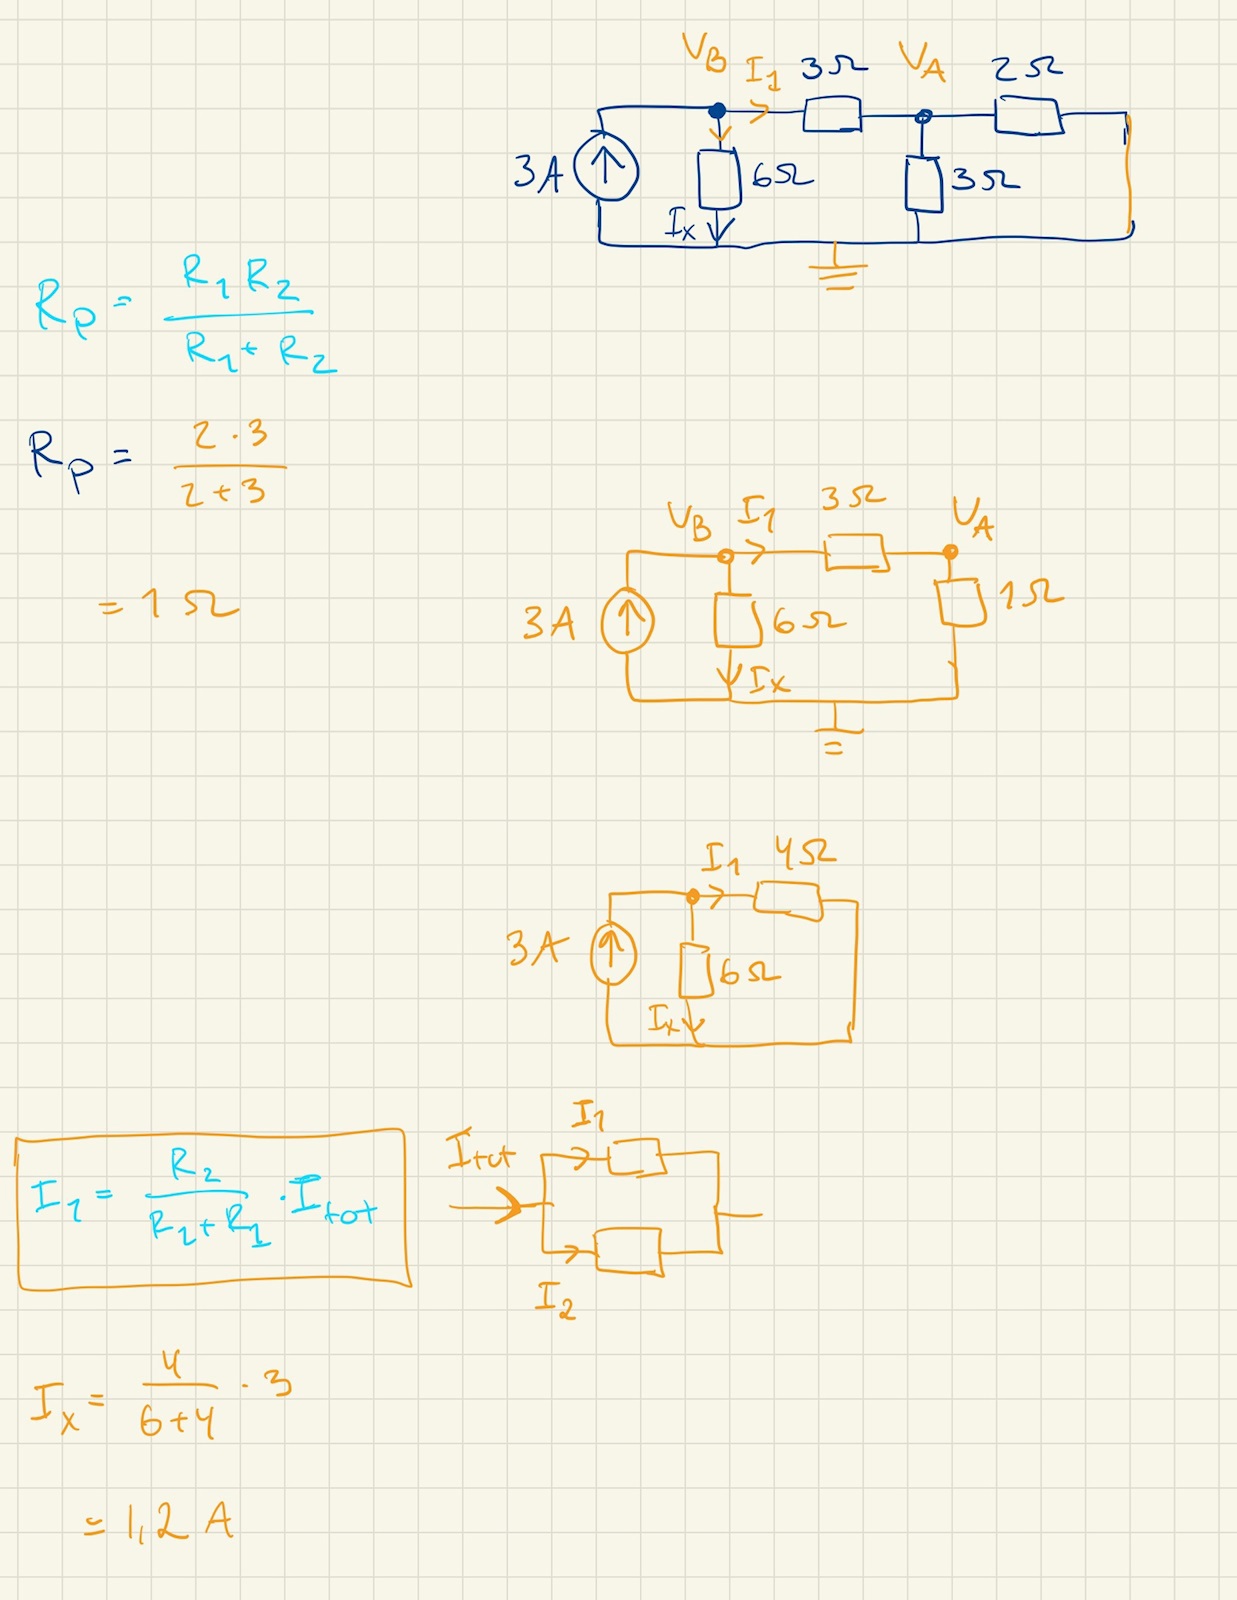 V_B I_1 3Ω V_A 2Ω
3A 6Ω 3Ω
I_x
R_p = R_1 R_2 / R_1 + R_2
R_p = 2 · 3 / 2 + 3
= 1 Ω
V_B I_1 3Ω V_A
3A 6Ω 1Ω
I_x
I_1 4Ω
3A 6Ω
I_x
I_1 = R_2 / R_2 + R_1 · I_tot
I_tot I_1
I_2
I_x = 4 / 6 + 4 · 3
= 1,2 A